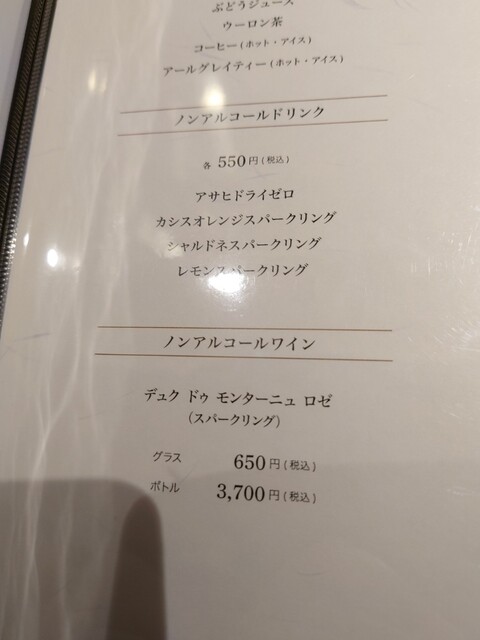 ぶどうジュース
ウーロン茶
コーヒー(ホット・アイス)
アールグレイティー(ホット・アイス)
ノンアルコールドリンク
各 550円(税込)
アサヒドライゼロ
カシスオレンジスパークリング
シャルドネスパークリング
レモンスパークリング
ノンアルコールワイン
デュク ドゥ モンターニュ ロゼ
(スパークリング)
グラス 650円(税込)
ボトル 3,700円(税込)